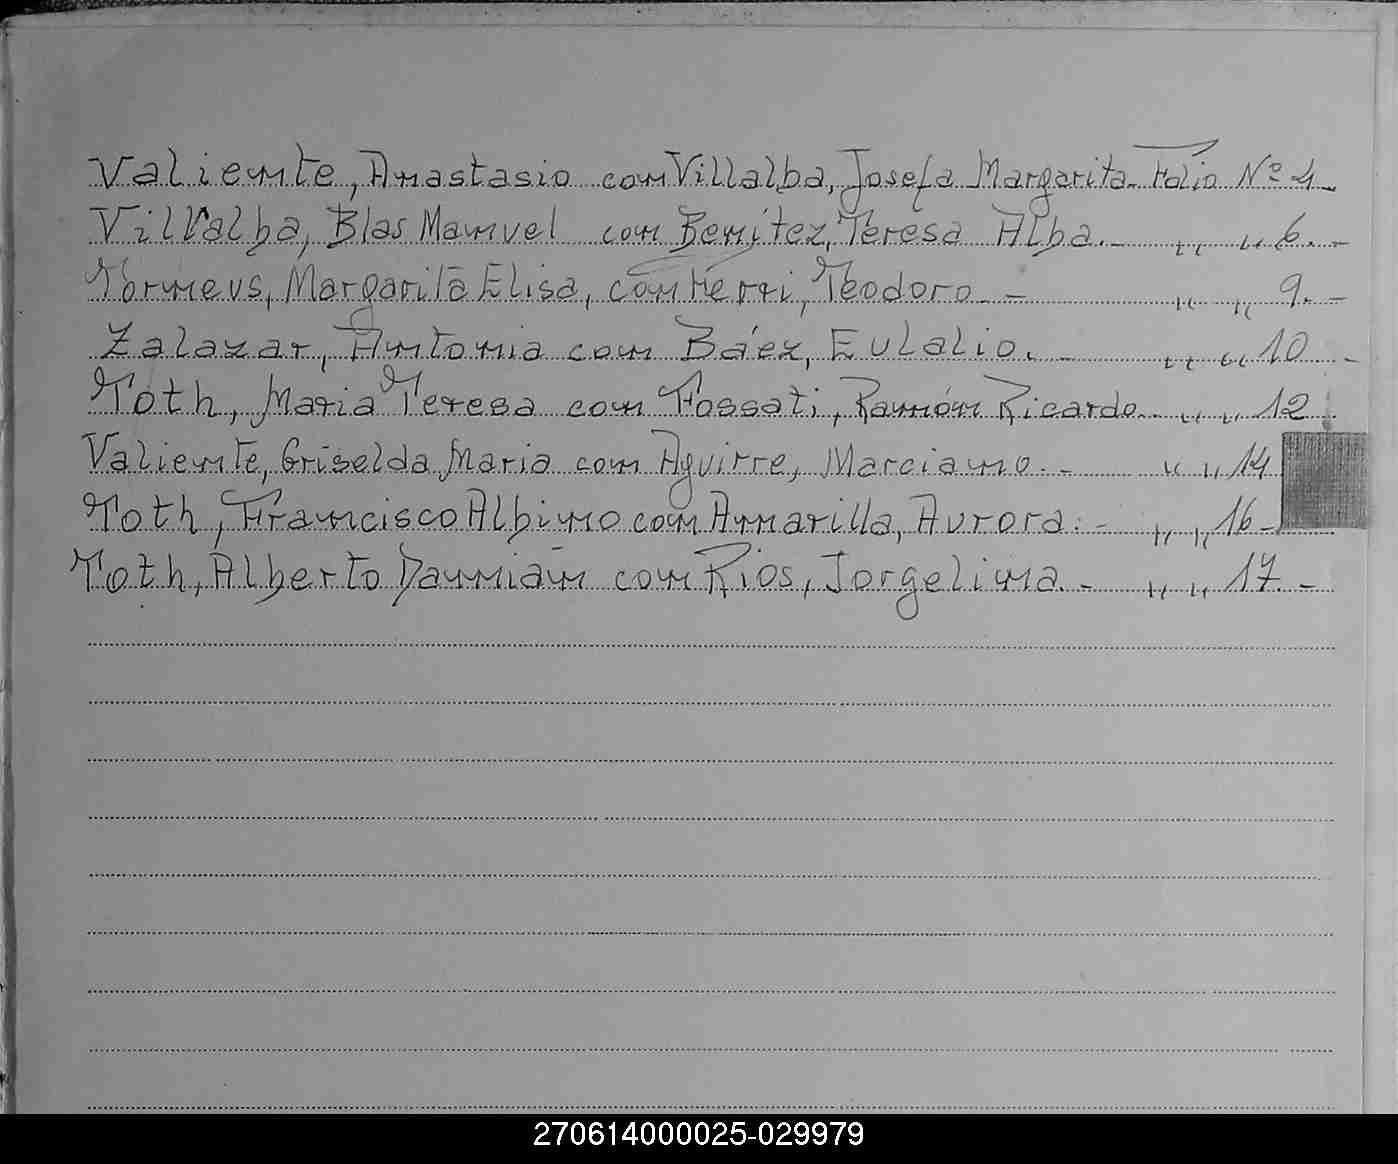 Valiente, Anastasio con Villalba, Josefa Margarita Folio Nº 4.-
Villalba, Blas Manuel con Benitez, Teresa Alba.- " " 6.-
Tormeus, Margarita Elisa, con Herri, Teodoro.- " " 9.-
Zalazar, Antonia con Báez, Eulalio.- " " 10.-
Toth, Maria Teresa con Fossati, Ramón Ricardo. " " 12.
Valiente, Griselda Maria con Aguirre, Marciano.- " " 14
Toth, Francisco Albino con Amarilla, Aurora.- " " 16.-
Toth, Alberto Damián con Rios, Jorgelina.- " " 17.-
270614000025-029979